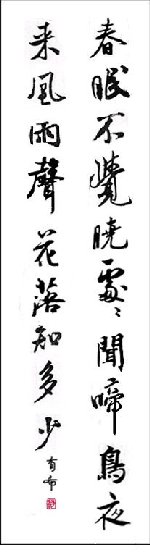 春眠不覺曉處〻聞啼鳥夜
来風雨聲花落知多少